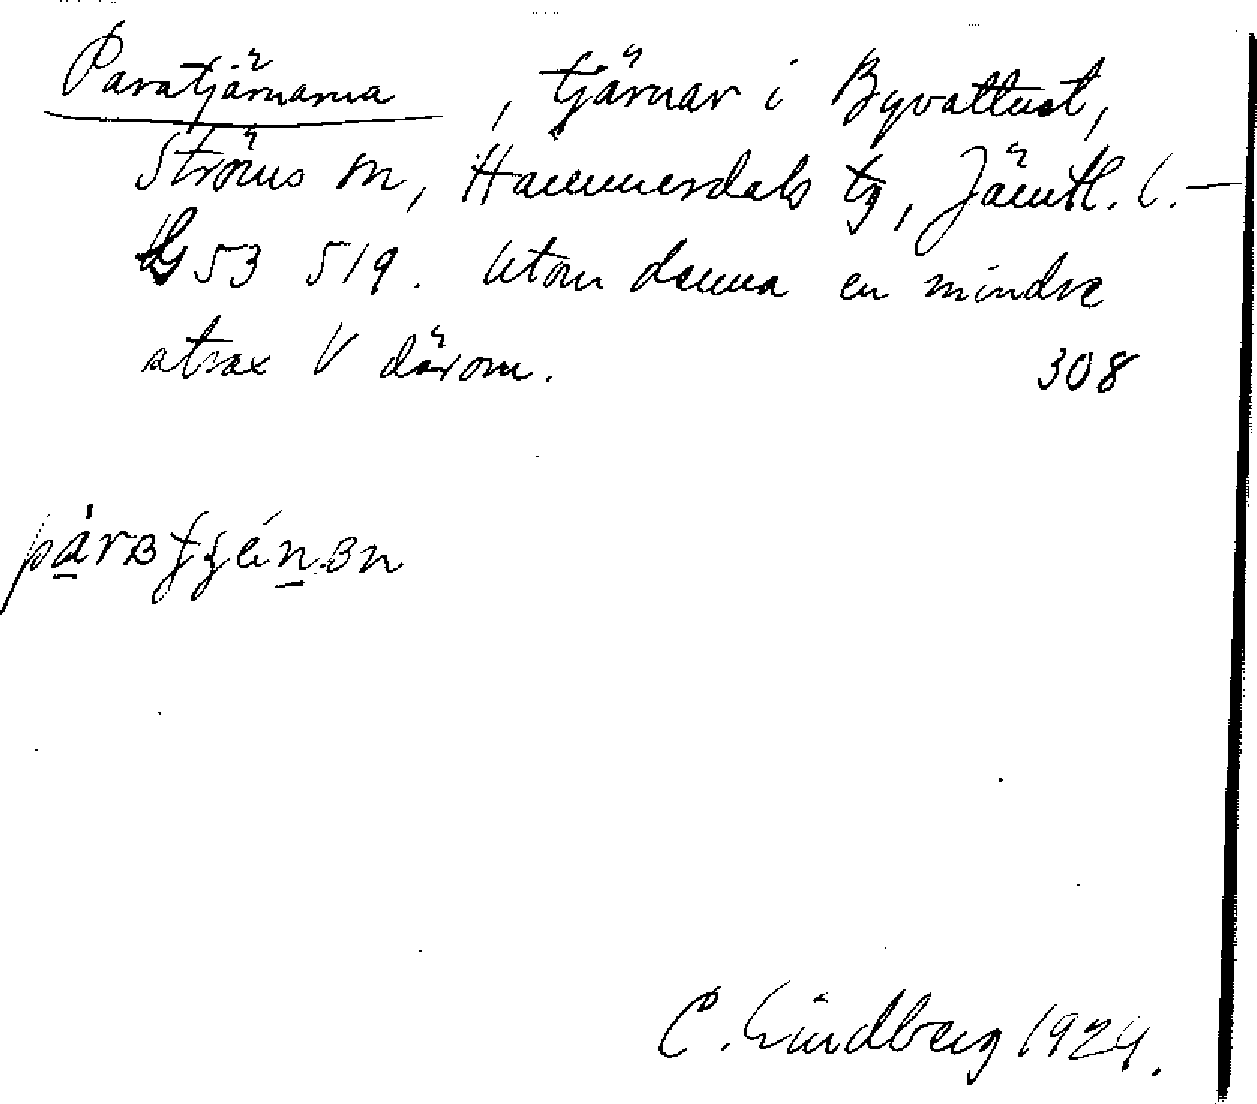 Paratjärnarna, tjärnar i Byvattnet,
Ströms sn, Hammerdals tg, Jämtl. l. —
53 519. Utom denna en mindre
strax V därom. 308
C. Lindberg 1924.